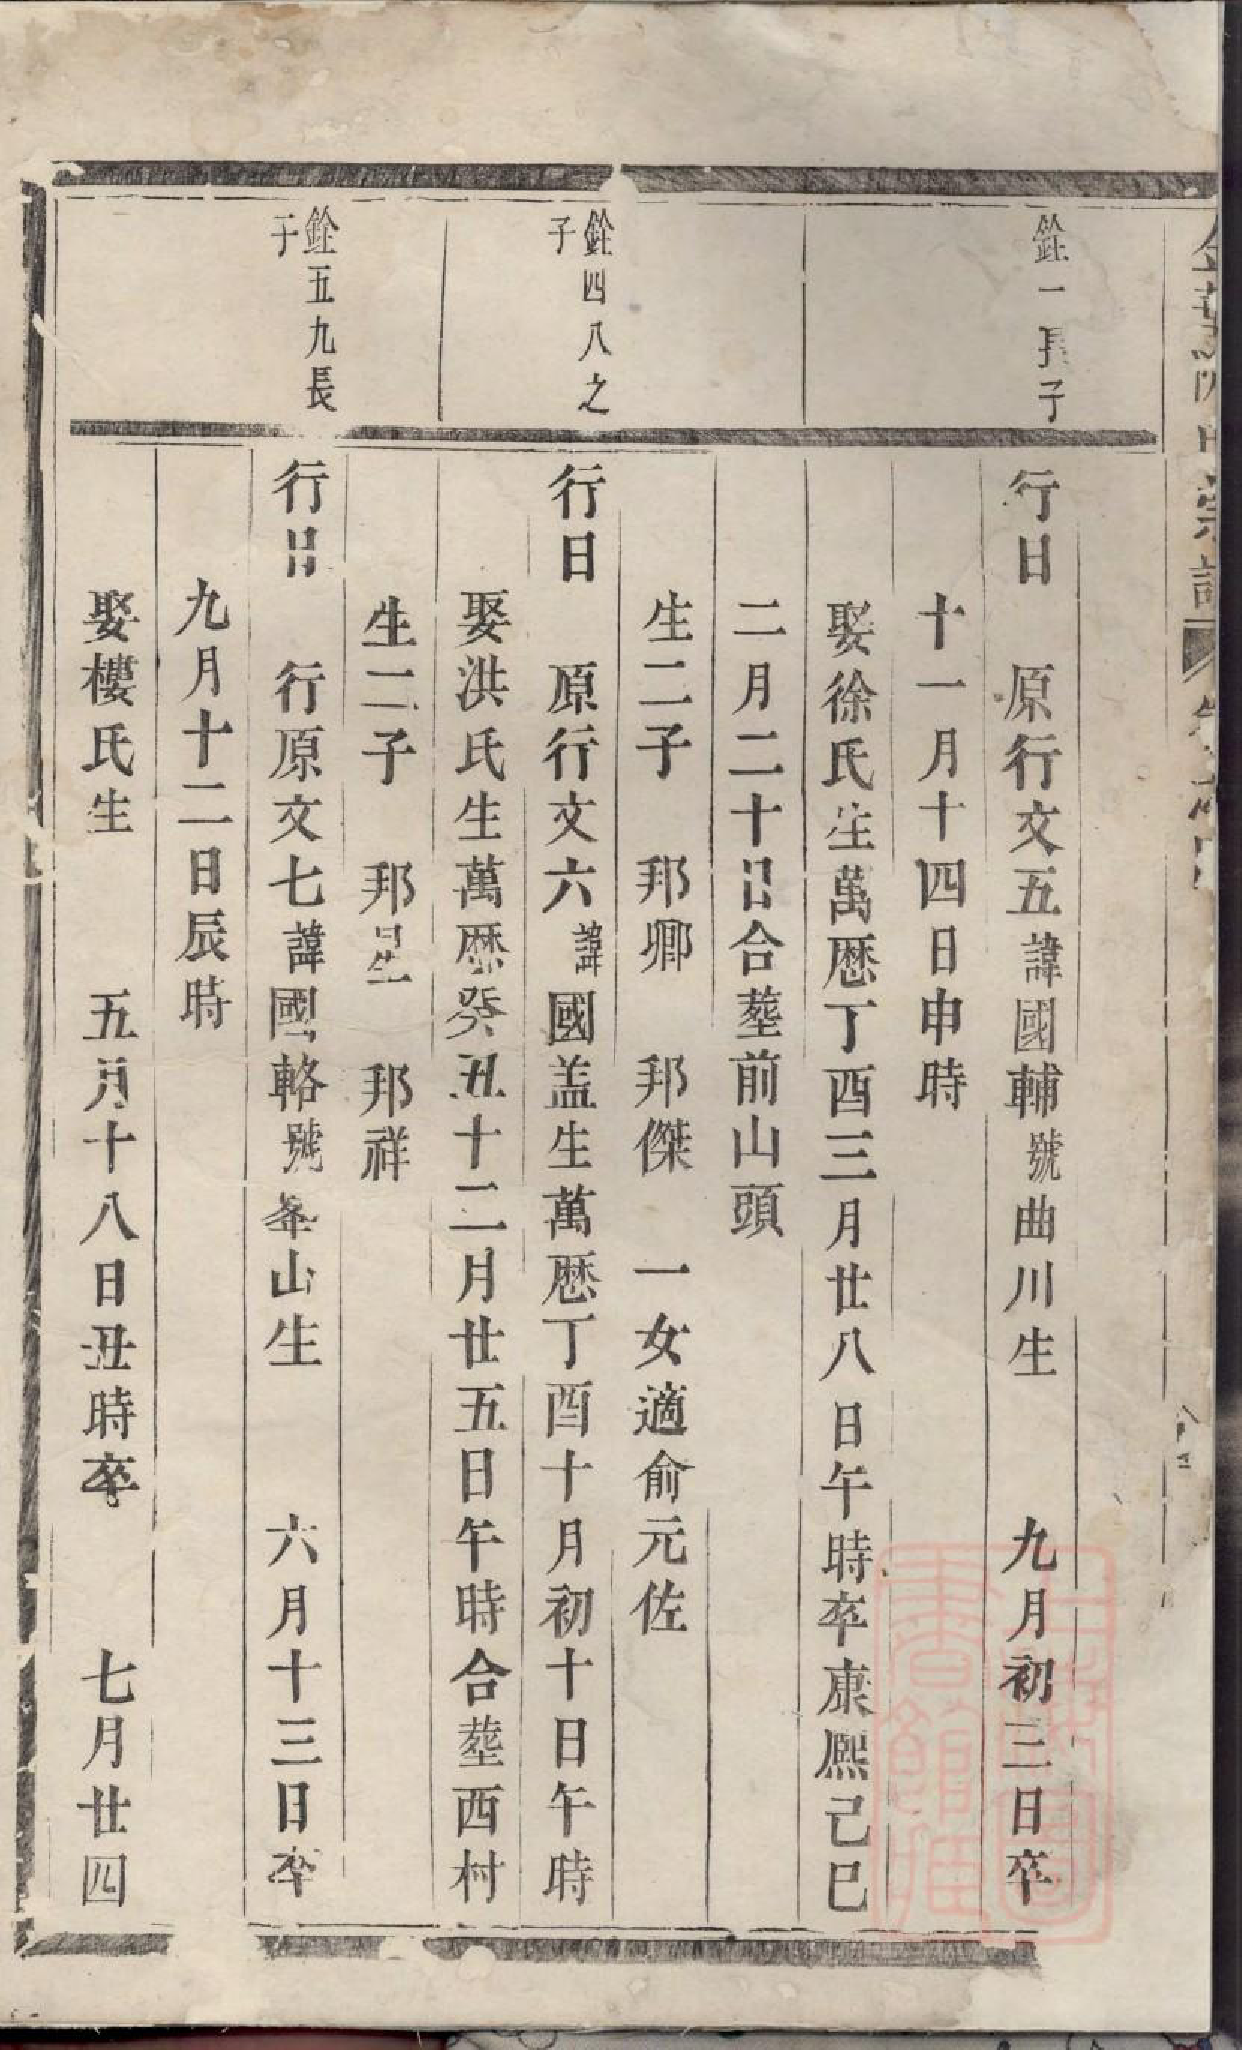 銓一長子
行日 原行文五諱國輔號曲川生 九月初三日卒
十一月十四日申時
娶徐氏生萬厯丁酉三月廿八日午時卒康熙己巳
二月二十日合塟前山頭
生二子 邦卿 邦傑 一女適俞元佐
銓四八之
子
行日 原行文六諱國盖生萬厯丁酉十月初十日午時
娶洪氏生萬厯癸丑十二月廿五日午時合塟西村
生二子 邦星 邦祥
銓五九長
子
行日 行原文七諱國輅號峯山生 六月十三日卒
九月十二日辰時
娶樓氏生 五月十八日丑時卒 七月廿四